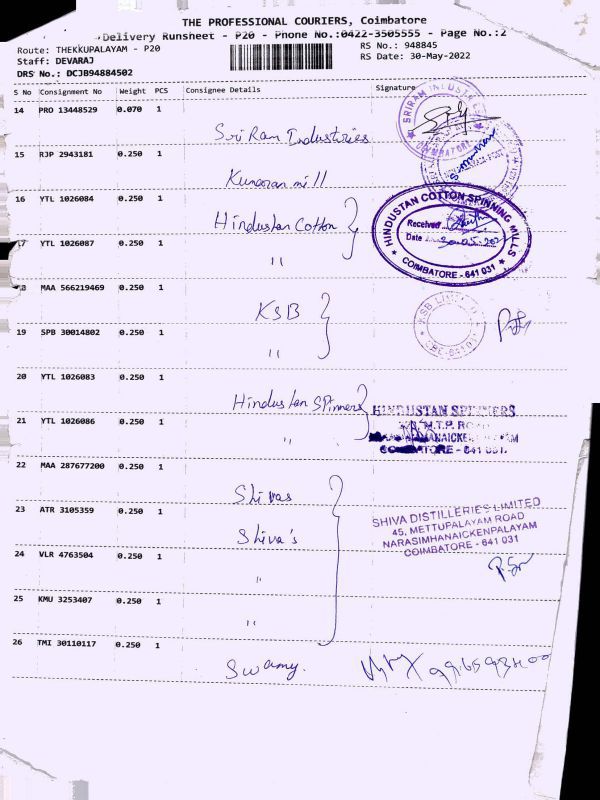 THE PROFESSIONAL COURIERS, Coimbatore
Delivery Runsheet - P20 - Phone No.:0422-3505555 - Page No.:2
Route: THEKKUPALAYAM - P20
RS No.: 948845
Staff: DEVARAJ
RS Date: 30-May-2022
DRS No.: DCJB94884502
S No Consignment No Weight PCS Consignee Details Signature
14 PRO 13448529 0.070 1
Sri Ram Industries
SRIRAM INDUSTRIES
COIMBATORE
15 RJP 2943181 0.250 1
Kumaran mill
16 YTL 1026084 0.250 1
Hindustan Cotton
HINDUSTAN COTTON SPINNING MILLS
Received
Date
COIMBATORE - 641 031
17 YTL 1026087 0.250 1
"
18 MAA 566219469 0.250 1
KSB
KSB LIMITED
19 SPB 30014802 0.250 1
"
20 YTL 1026083 0.250 1
Hindustan SPinners
HINDUSTAN SPINNERS
M.T.P. ROAD
COIMBATORE - 641 031.
21 YTL 1026086 0.250 1
"
22 MAA 287677200 0.250 1
Shivas
23 ATR 3105359 0.250 1
Shiva's
SHIVA DISTILLERIES LIMITED
45, METTUPALAYAM ROAD
NARASIMHANAICKENPALAYAM
COIMBATORE - 641 031
24 VLR 4763504 0.250 1
"
25 KMU 3253407 0.250 1
"
26 TMI 30110117 0.250 1
Swamy.